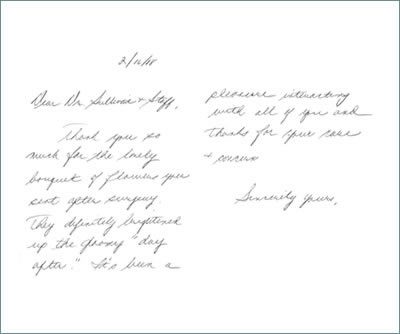 2/16/18
Dear Dr. Sullivan & Staff,
Thank you so
much for the lovely
bouquet of flowers you
sent after surgery.
They definitely brightened
up the gloomy "day
after." It's been a
pleasure interacting
with all of you and
thanks for your care
+ concern
Sincerely yours,